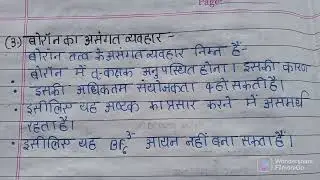 Page:
(3.) बोरॉन का असंगत व्यवहार -
बोरॉन तत्व के असंगत व्यवहार निम्न हैं-
बोरॉन में d-कक्षक अनुपस्थित होना। इसकी कारण
• इसकी अधिकतम संयोजकता 4 हो सकती है।
• इसीलिए यह अष्टक का प्रसार करने में असमर्थ
रहता है।
• इसीलिए यह BF₆³⁻ आयन नहीं बना सकता है।
Wondershare
Filmora